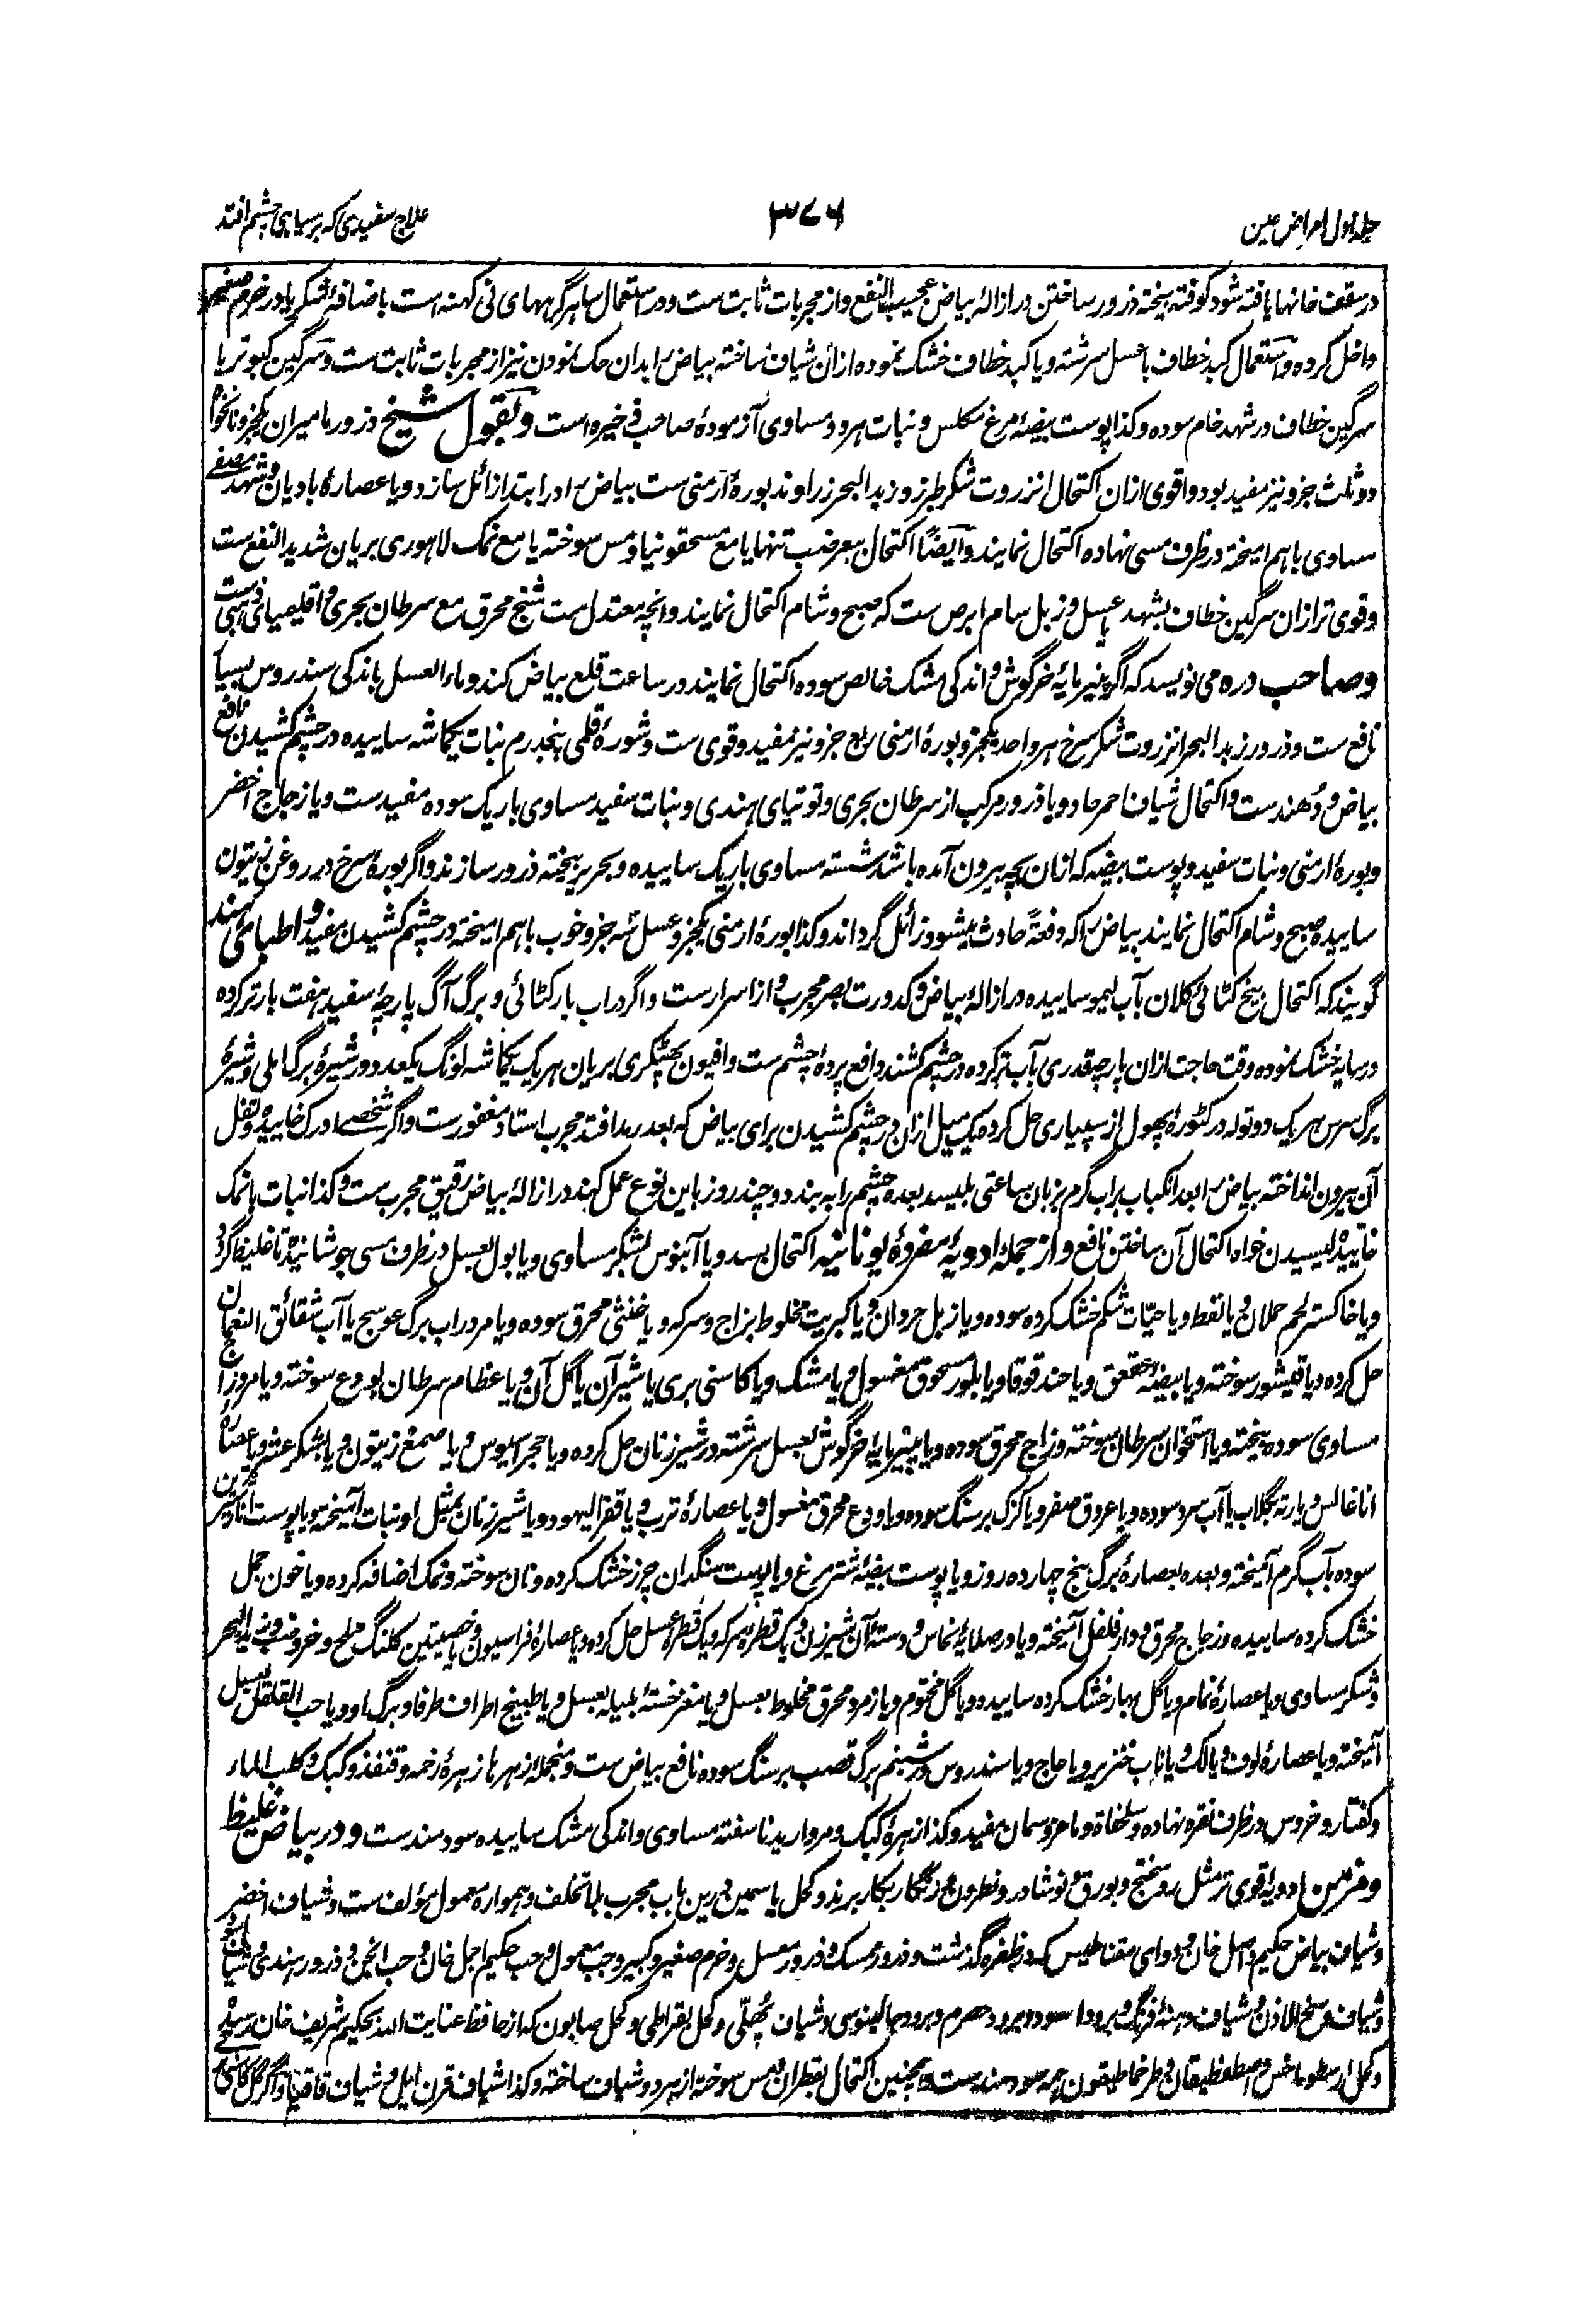 جلد اول امراض عین
۳۷۶
علاج سفیدی که بر سیاهی چشم افتد
در سقف خانها یافته شود کوفته بیخته ذرور ساختن در ازالۀ بیاض عجیب النفع و از مجربات ثابت ست و در استعمال سا هر گرههای نی کهنه است باضافۀ شکر یا در خرم صغیر
داخل کرده و استعمال کبد خطاف با عسل سرشته و یا کبد خطاف خشک نموده ازان شیاف ساخته بیاض را بدان حک نمودن نیز از مجربات ثابت ست و سرگین کبوتر یا
سرگین خطاف در شهد خام سوده و کذا پوست بیضۀ مرغ مکلس و نبات هر دو مساوی آزمودۀ صاحب ذخیره است و بقول شیخ ذرور مامیران یکجزو نانخواه
دو ثلث جزو نیز مفید بود و اقوی ازان اکتحال انزروت شکر طبرزد زبد البحر زراوند بورۀ ارمنی ست بیاض را در ابتدا زائل سازد و یا عصارۀ بادیان و شهد مصفے
مساوی باهم امیخته در ظرف مسی نهاده اکتحال نمایند و ایضًا اکتحال بعر ضب تنها یا مع مسحقونیا و مس سوخته یا مع نمک لاهوری بریان شدید النفع ست
و قوی تر ازان سرگین خطاف بشهد یا عسل و زبل سام ابرص ست که صبح و شام اکتحال نمایند و انچه معتدل ست شنج محرق مع سرطان بحری و اقلیمیای ذهبی ست
و صاحب دره می نویسد که اگر پنیر مایۀ خرگوش و اندکی مشک خالص سوده اکتحال نمایند در ساعت قلع بیاض کند و ماء العسل باندکی سندروس بسیار
نافع ست و ذرور زبد البحر انزروت شکر سرخ هر واحد یکجزو بورۀ ارمنی ربع جزو نیز مفید و قوی ست و شورۀ قلمی پنجدرم نبات یکماشه ساییده در چشم کشیدن نافع
بیاض و دُهند ست و اکتحال شیاف احمر حاد و یا ذرور مرکب از سرطان بحری و توتیای هندی و نبات سفید مساوی باریک سوده مفید ست و یا زجاج اخضر
و بورۀ ارمنی و نبات سفید و پوست بیضه که ازان بچه بیرون آمده باشد شسته مساوی باریک ساییده و بحریر بیخته ذرور سازند و اگر بورۀ سرخ در روغن زیتون
ساییده صبح و شام اکتحال نمایند بیاض را که دفعةً حادث میشود زائل گرداند و کذا بورۀ ارمنی یکجزو عسل سه جزو خوب باهم امیخته در چشم کشیدن مفید و اطبای هند
گویند که اکتحال بیخ کٹائی کلان بآب لیمو ساییده در ازالۀ بیاض و کدورت بصر مجرب و از اسرار ست و اگر در اب بار کٹائی و برگ آگ پارچۀ سفید هفت بار تر کرده
در سایه خشک نموده وقت حاجت ازان پارچه قدری بآب تر کرده در چشم کشند دافع پردۀ چشم ست و افیون پھٹکری بریان هر یک یکماشه لونگ یکعدد در شیرۀ برگ املی و شیرۀ
برگ سرس هر یک دو توله در کٹورۀ پھول از سپیاری حل کرده یک میل ازان در چشم کشیدن برای بیاض که بعد رمد افتد مجرب استاد مغفور ست و اگر شخصے ادرک خاییده و ثفل
آن بیرون انداخته بیاض را بعد انکباب براب گرم بزبان ساعتی بلیسد بعده چشم را به بندد و چند روز باین نوع عمل کند در ازالۀ بیاض رقیق مجرب ست و کذا نبات یا نمک
خاییده لیسیدن خواه اکتحال آن ساختن نافع و از جملۀ ادویۀ مفردۀ یونانیه اکتحال بسد و یا آبنوس بشکر مساوی و یا بول بعسل در ظرف مسی جوشانیده تا غلیظ گردد
و یا خاکستر لحم حملان و یا نفط و یا حیّات شکم خشک کرده سوده و یا زبل حردان و یا کبریت مخلوط بزاج و سرکه و یا خنثی محرق سوده و یا مر در اب برگ عوسج یا آب شقائق النعمان
حل کرده و یا قیشور سوخته و یا بیضۀ عقعق و یا حندقوقا و یا بلور مسحوق مغسول و یا مشک و یا کاسنی بری یا شیر آن یا گل آن و یا عظام سرطان و ودع سوخته و یا مر و زاج
مساوی سوده بیخته و یا استخوان سرطان سوخته و زاج محرق سوده و یا پنیر مایۀ خرگوش بعسل سرشته در شیر زنان حل کرده و یا حجر اسیوس و یا صمغ زیتون و یا شکر عشر و یا عصارۀ
اناغالس و یا رته بگلاب یا آب سرد سوده و یا عروق صفر و یا کزک بر سنگ سوده و یا ودع محرق مغسول و یا عصارۀ ترب و یا قفر الیهود و یا شیر زنان بمثل او نبات آمیخته و یا پوست انار شیرین
سوده بآب گرم آمیخته و بعده بعصارۀ برگ بنج چهارده روز و یا پوست بیضۀ شتر مرغ و یا پوست سنگدان چرز خشک کرده و نان سوخته و نمک اضافه کرده و یا خون جمل
خشک کرده ساییده و زجاج محرق و دارفلفل آمیخته و یا در صلایۀ نحاس و دستۀ آن شیر زن و یک قطرۀ سرکه و یک قطرۀ عسل حل کرده و یا عصارۀ فراسیون و یا خصیتین کلنگ بملح و خرو ضب و زبد البحر
و شکر مساوی و یا عصارۀ نمام و یا گل بهار خشک کرده ساییده و یا گل مختوم و یا زمرد محرق مخلوط بعسل و یا مغز خستۀ بلیله بعسل و یا طبیخ اطراف طرفا و برگ او و یا حب القلقل بعسل
آمیخته و یا عصارۀ لوف و یا لک و یا ناب خنزیر و یا عاج و یا سندروس در شبنم برگ قصب بر سنگ سوده نافع بیاض ست و منجملۀ زهرها زهرۀ رخمه و قنفذ و کبک و کلب الماء
و کفتار و خروس در ظرف نقره نهاده و سلحفاة و مار و سمان مفید و کذا زهرۀ کبک و مروارید ناسفته مساوی و اندکی مشک ساییده سودمند ست و در بیاض غلیظ
و مزمن ادویۀ قوی تر مثل روسختج و بورق و نوشادر و نطرون و زنگار بکار برند و کحل یاسمین درین باب مجرب بلا تخلف و همواره معمول مؤلف ست و شیاف اخضر
و شیاف بیاض حکیم واصل خان و دوای مقناطیس که در ظفره گذشت و ذرور ممسک و ذرور معسل و خرم صغیر و کبیر و حب معمول و حب حکیم اجمل خان و حب انجن و ذرور هندی و شیاف اسود
و شیاف وسخ الاذن و شیاف دهنۀ فرنگ و برود اسود و برود حصرم و برود جالینوسی و شیاف پُھلّی و کحل بقراطی و کحل صابون که از حافظ عنایت الله بحکیم شریف خان رسیده
و کحل ارسطوماخس و اصطفطیقان و طرخماطیقون همه سودمند ست و همچنین اکتحال بقطران و مس سوخته از هر دو شیاف ساخته و کذا شیاف قرن ایل و شیاف قاقیا و اگر